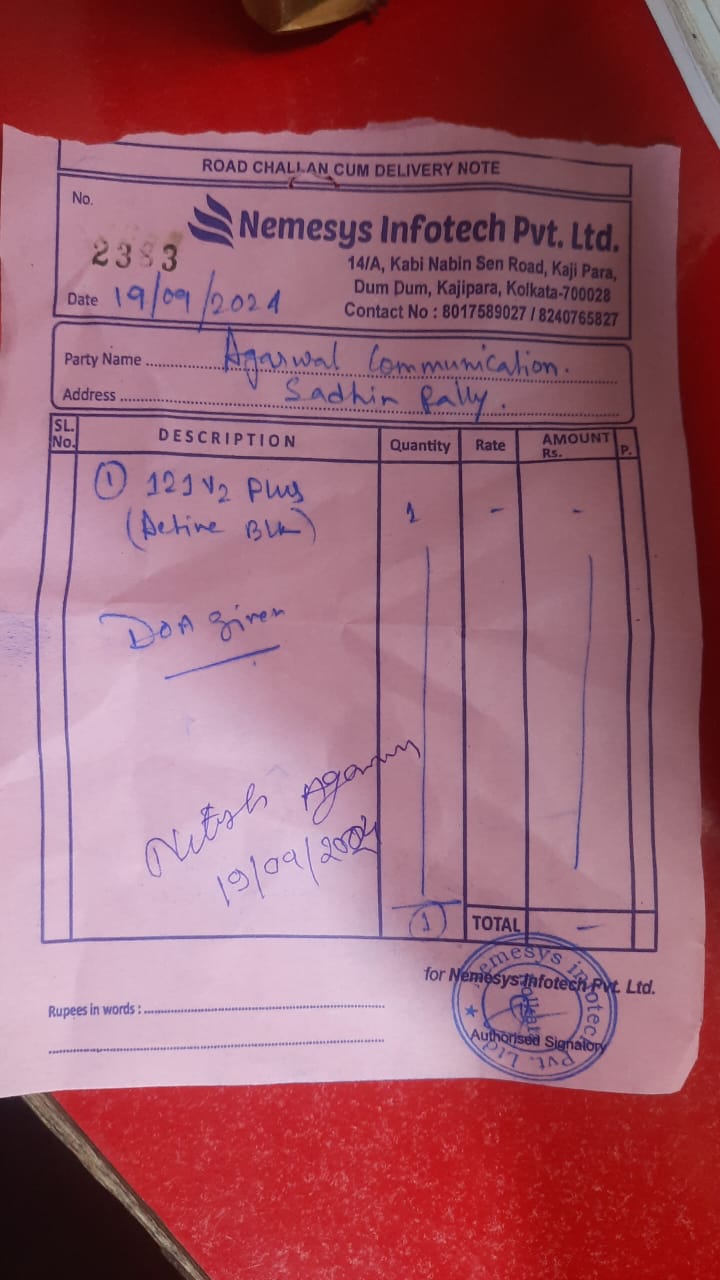 ROAD CHALLAN CUM DELIVERY NOTE
No.
2383
Nemesys Infotech Pvt. Ltd.
14/A, Kabi Nabin Sen Road, Kaji Para,
Dum Dum, Kajipara, Kolkata-700028
Contact No : 8017589027 / 8240765827
Date 19/09/2024
Party Name Agarwal Communication.
Address Sadhin Pally.
SL. No. DESCRIPTION Quantity Rate AMOUNT Rs. P.
① 121 V2 Plus 1 - -
(Active Blk)
DOA given
Nitesh Agarwal
19/09/2024
1 TOTAL -
for Nemesys Infotech Pvt. Ltd.
Rupees in words :
Nemesys Infotech Pvt. Ltd.
Kolkata
Authorised Signatory